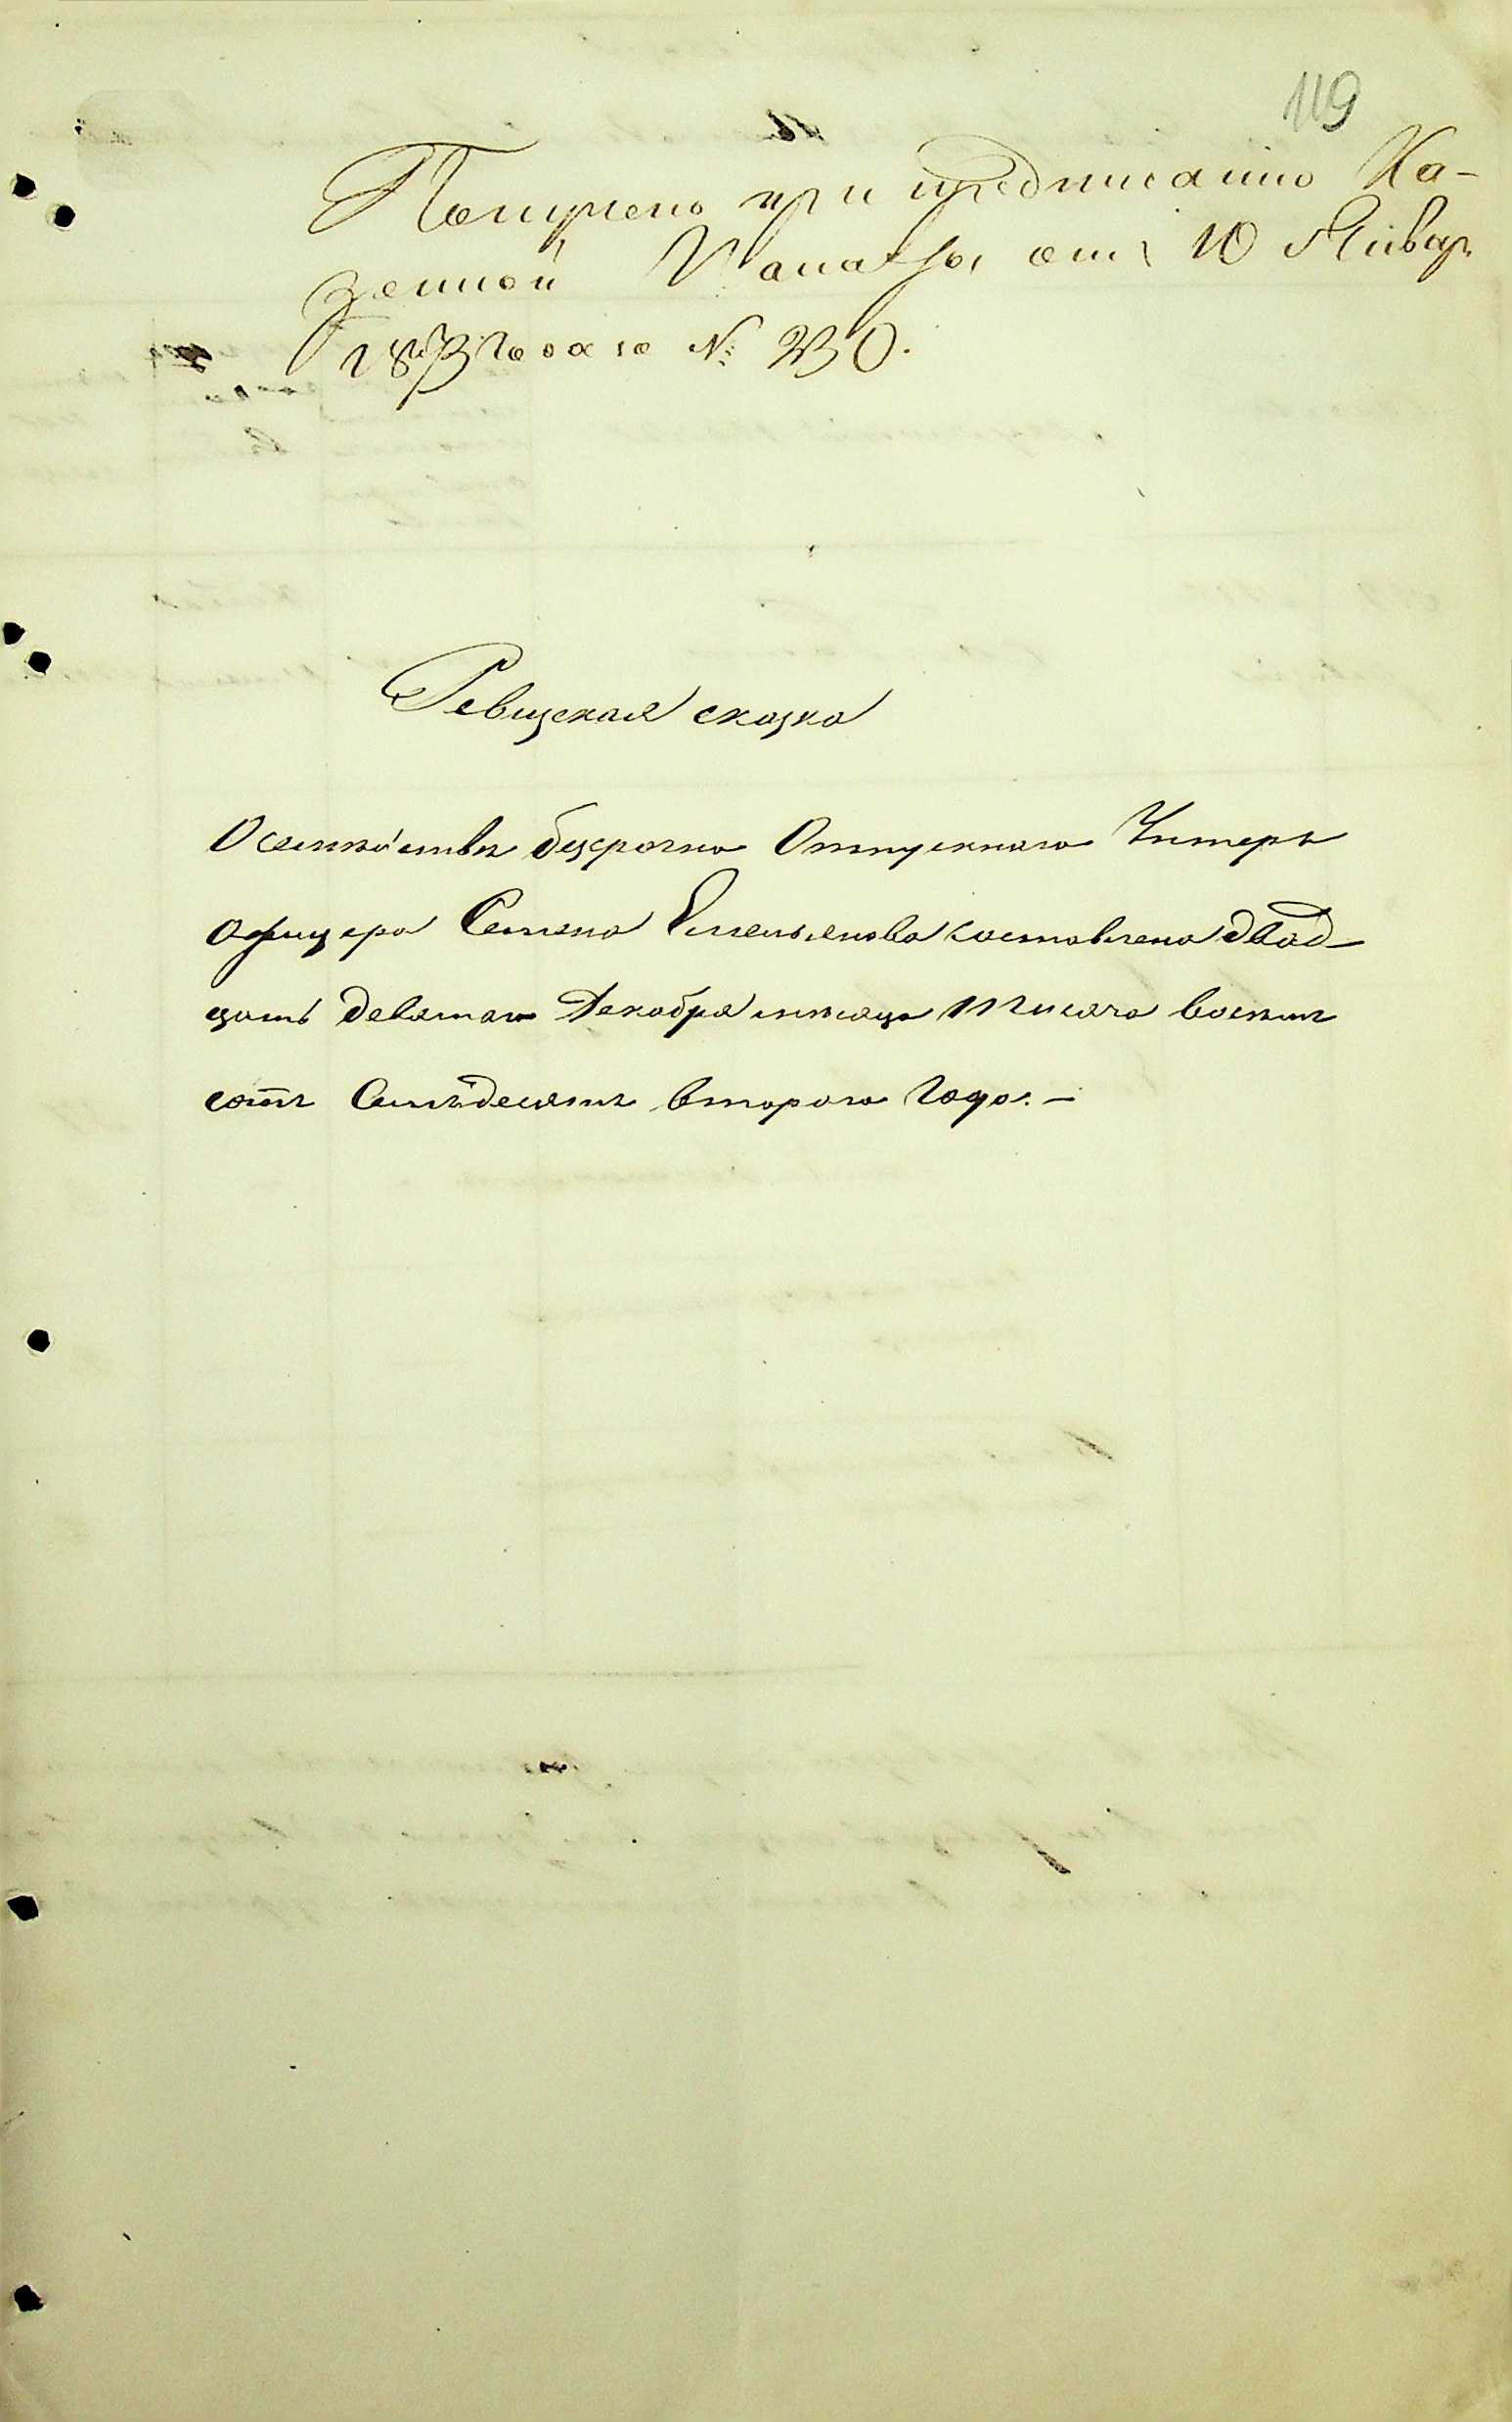 119
Получено при предписанiю Ка-
зенной Палаты отъ 10 Январ.
1873 года за № 230.
Ревизская сказка
О семействѣ безсрочно Отпускнаго Унтеръ
офицера Семена Емельянова составлена двад-
цать девятаго Декабря мѣсяца тысяча восемь
сотъ Семьдесятъ втораго Года. —